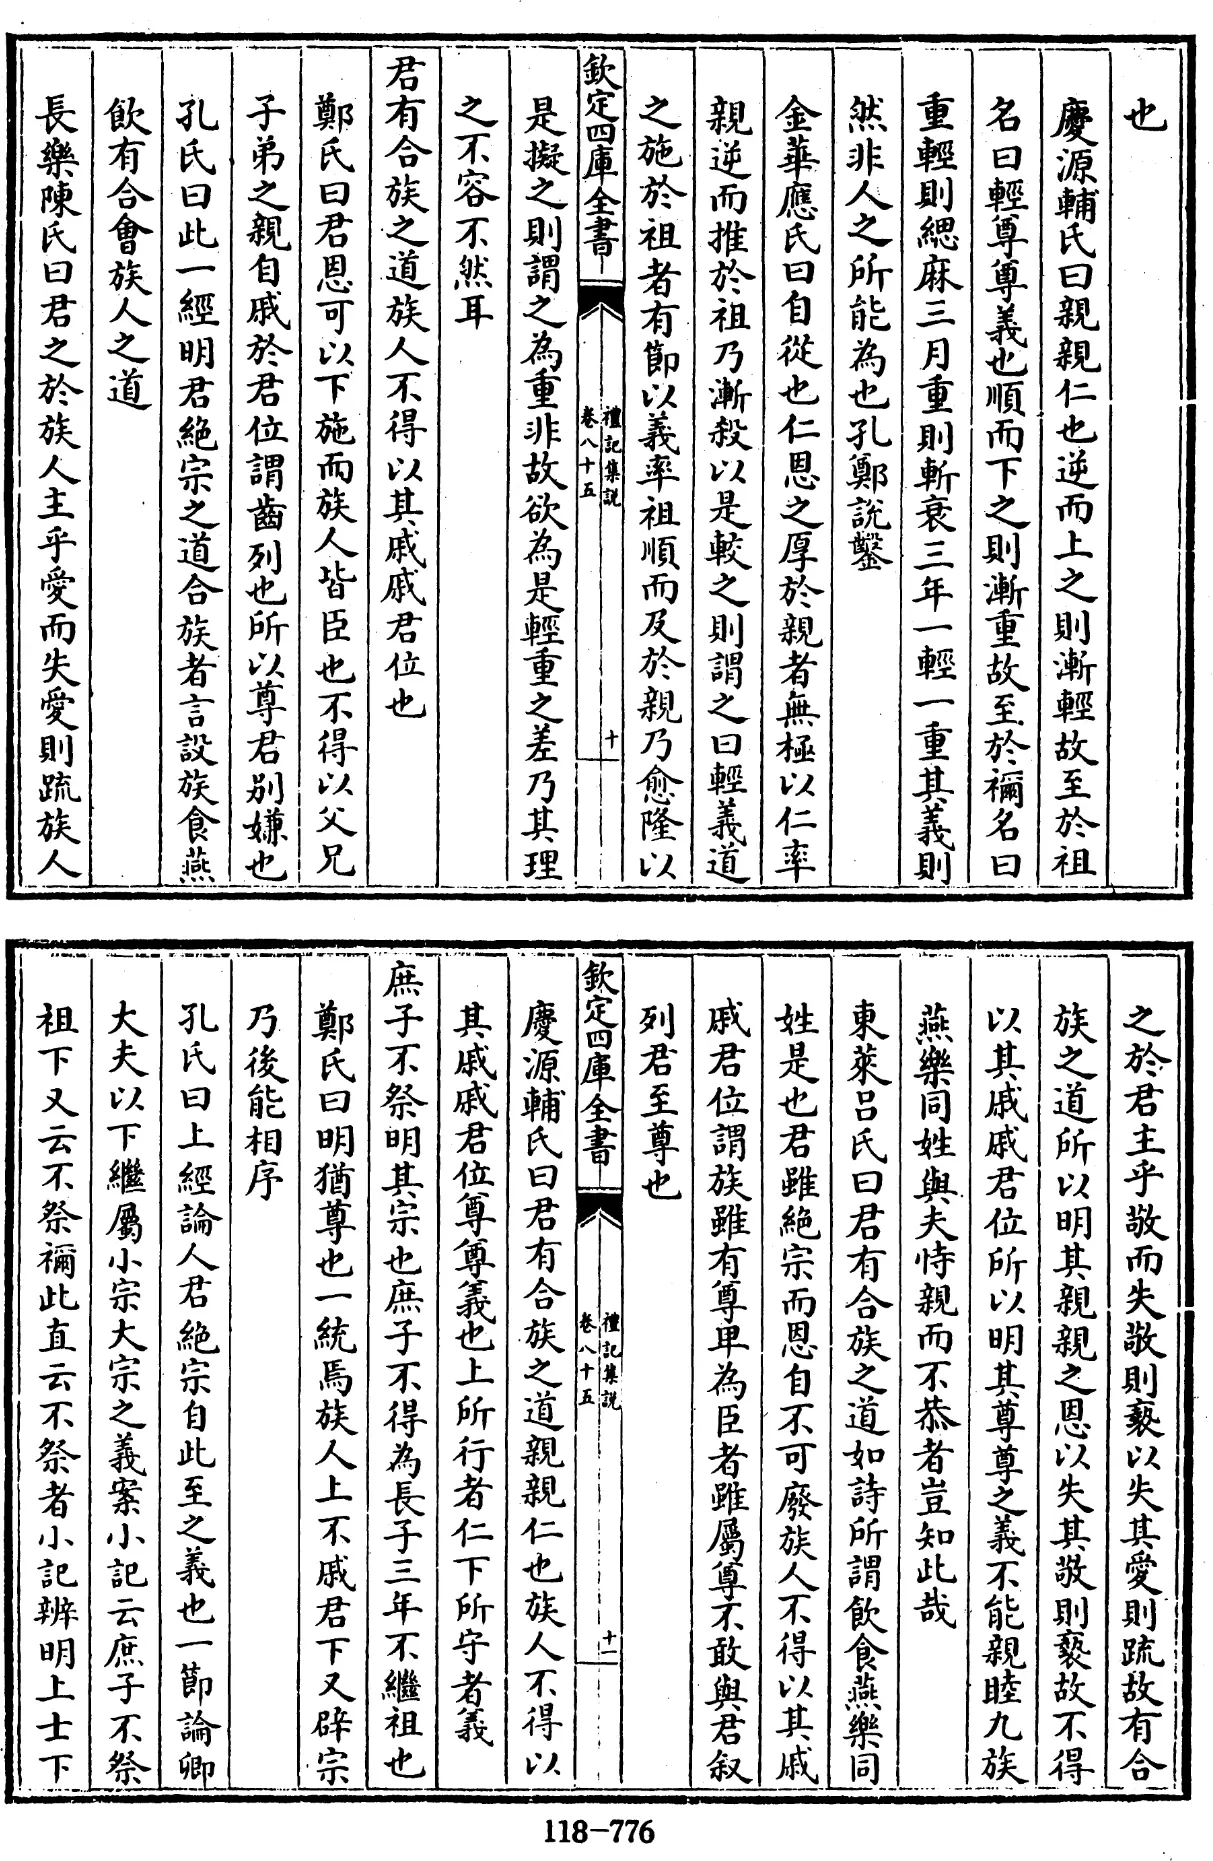 也
慶源輔氏曰親親仁也逆而上之則漸輕故至於祖
名曰輕尊尊義也順而下之則漸重故至於禰名曰
重輕則緦麻三月重則斬衰三年一輕一重其義則
然非人之所能為也孔鄭説鑿
金華應氏曰自從也仁恩之厚於親者無極以仁率
親逆而推於祖乃漸殺以是較之則謂之曰輕義道
之施於祖者有節以義率祖順而及於親乃愈隆以
欽定四庫全書
禮記集説
卷八十五
十
是擬之則謂之為重非故欲為是輕重之差乃其理
之不容不然耳
君有合族之道族人不得以其戚戚君位也
鄭氏曰君恩可以下施而族人皆臣也不得以父兄
子弟之親自戚於君位謂齒列也所以尊君别嫌也
孔氏曰此一經明君絶宗之道合族者言設族食燕
飲有合會族人之道
長樂陳氏曰君之於族人主乎愛而失愛則疏族人
之於君主乎敬而失敬則褻以失其愛則疏故有合
族之道所以明其親親之恩以失其敬則褻故不得
以其戚戚君位所以明其尊尊之義不能親睦九族
燕樂同姓與夫恃親而不恭者豈知此哉
東萊吕氏曰君有合族之道如詩所謂飲食燕樂同
姓是也君雖絶宗而恩自不可廢族人不得以其戚
戚君位謂族雖有尊卑為臣者雖屬尊不敢與君叙
列君至尊也
欽定四庫全書
禮記集説
卷八十五
十一
慶源輔氏曰君有合族之道親親仁也族人不得以
其戚戚君位尊尊義也上所行者仁下所守者義
庶子不祭明其宗也庶子不得為長子三年不繼祖也
鄭氏曰明猶尊也一統焉族人上不戚君下又辟宗
乃後能相序
孔氏曰上經論人君絶宗自此至之義也一節論卿
大夫以下繼屬小宗大宗之義案小記云庶子不祭
祖下又云不祭禰此直云不祭者小記辨明上士下
118-776